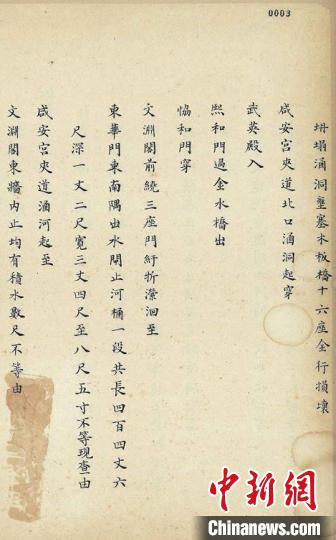 0003
坍塌涵洞壅塞木板橋十六座全行損壞
咸安宮夾道北口涵洞起穿
武英殿入
熙和門過金水橋出
協和門穿
文淵閣前繞三座門紆折瀠洄至
東華門東南隅出水閘止河桶一段共長四百四丈六
尺深一丈二尺寬三丈四尺至八尺五寸不等現查由
咸安宮夾道涵河起至
文淵閣東牆內止均有積水數尺不等由
中新網
Chinanews.com